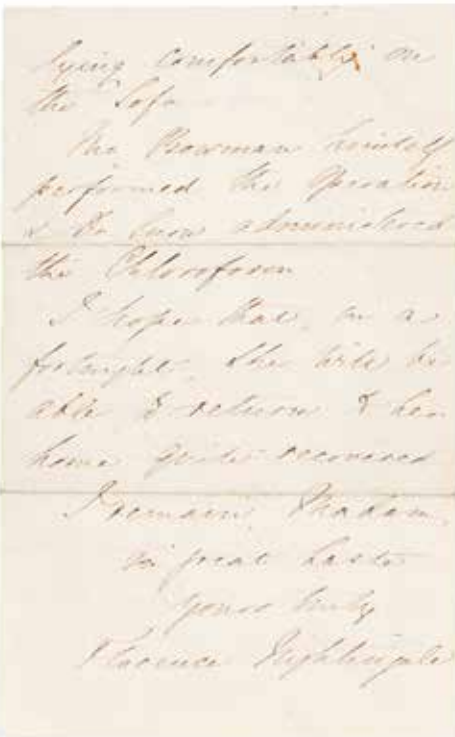 lying comfortably on
the Sofa
Mr Bowman himself
performed the Operation
& Dr Snow administered
the Chloroform
I hope that, in a
fortnight, she will be
able to return to her
home quite recovered
I remain, Madam,
in great haste
yours truly
Florence Nightingale